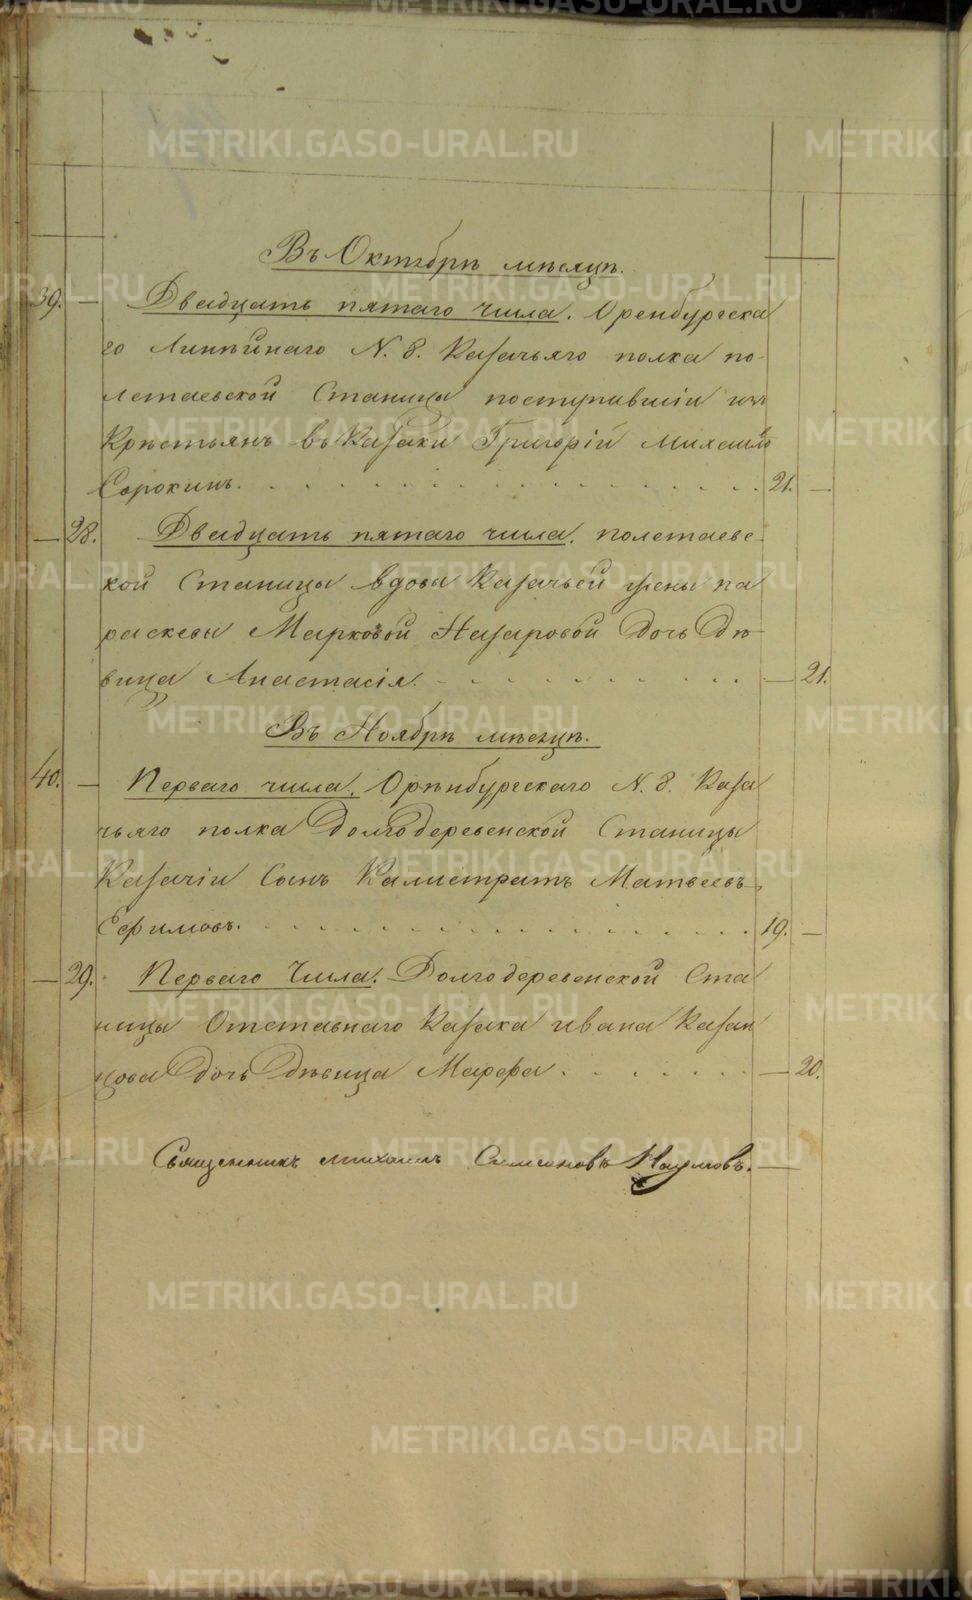 Въ Октябрѣ мѣсяцѣ.
39. — Двадцать пятаго числа. Оренбургска
го Линѣйнаго N. 8. Казачьяго полка по-
летаевской Станицы поступившiи изъ
Крѣстьянъ въ Казаки Григорiй Михаило
Сорокинъ. 21. —
— 28. Двадцать пятаго числа. полетаевс-
кой Станицы вдовы Казачьей жены па
раскевы Марковой Назаровой дочь дѣ-
вица Анастасiя. — 21.
Въ Ноябрѣ мѣсяцѣ.
40. — Перваго числа. Орѣнбургскаго N. 8. Каза
чьяго полка Долгодеревенской Станицы
Казачiи Сынъ Калистратъ Матвеевъ
Ефимовъ. 19. —
— 29. Перваго Числа. Долгодеревенской Ста
ницы Отставнаго Казака ивана Казан
цова дочь дѣвица Марфа. — 20.
Священникъ михаилъ Симеоновъ Наумовъ. —
METRIKI.GASO-URAL.RU